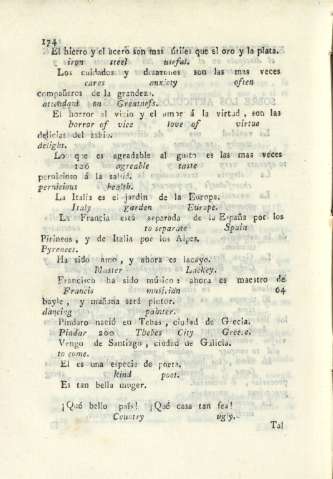 174
El hierro y el acero son mas útiles que el oro y la plata.
iron steel useful.
Los cuidados y desazones son las mas veces
cares anxiety often
compañeros de la grandeza.
attendant on Greatness.
El horror al vicio y el amor á la virtud, son las
horror of vice love of virtue
delicias del sabio.
delight.
Lo que es agradable al gusto es las mas veces
126 agreable taste
pernicioso á la salud.
pernicious health.
La Italia es el jardin de la Europa.
Italy garden Europe.
La Francia está separada de la España por los
to separate Spain
Pirineos, y de Italia por los Alpes.
Pyrenees.
Ha sido amo, y ahora es lacayo.
Master Lackey.
Francisco ha sido músico: ahora es maestro de
Francis musician 64
bayle, y mañana será pintor.
dancing painter.
Pindaro nació en Tebas, ciudad de Grecia.
Pindar 200 Thebes City Greece.
Vengo de Santiago, ciudad de Galicia.
to come.
El es una especie de poeta.
kind poet.
Es tan bella muger.
¡Qué bello país! ¡Qué casa tan fea!
Country ugly.
Tal